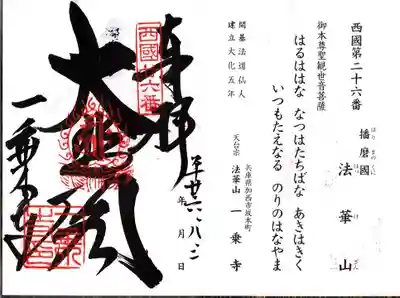 西國第二十六番
播磨國 法華山
はり まのくに ほっ け ざん
御本尊聖観世音菩薩
はるははな なつはたちばな あきはきく
いつもたえなる のりのはなやま
開基法道仙人
建立大化五年
兵庫県加西市坂本町
天台宗 法華山 一乗寺
奉拝
年 月 日
西國廿六番
大悲閣
一乗寺